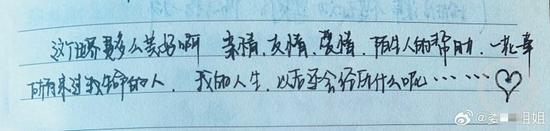 这个世界是多么美好啊 亲情、友情、爱情、陌生人的帮助、一花一草
所有来过我生命的人、我的人生、以后还会经历什么呢……♡